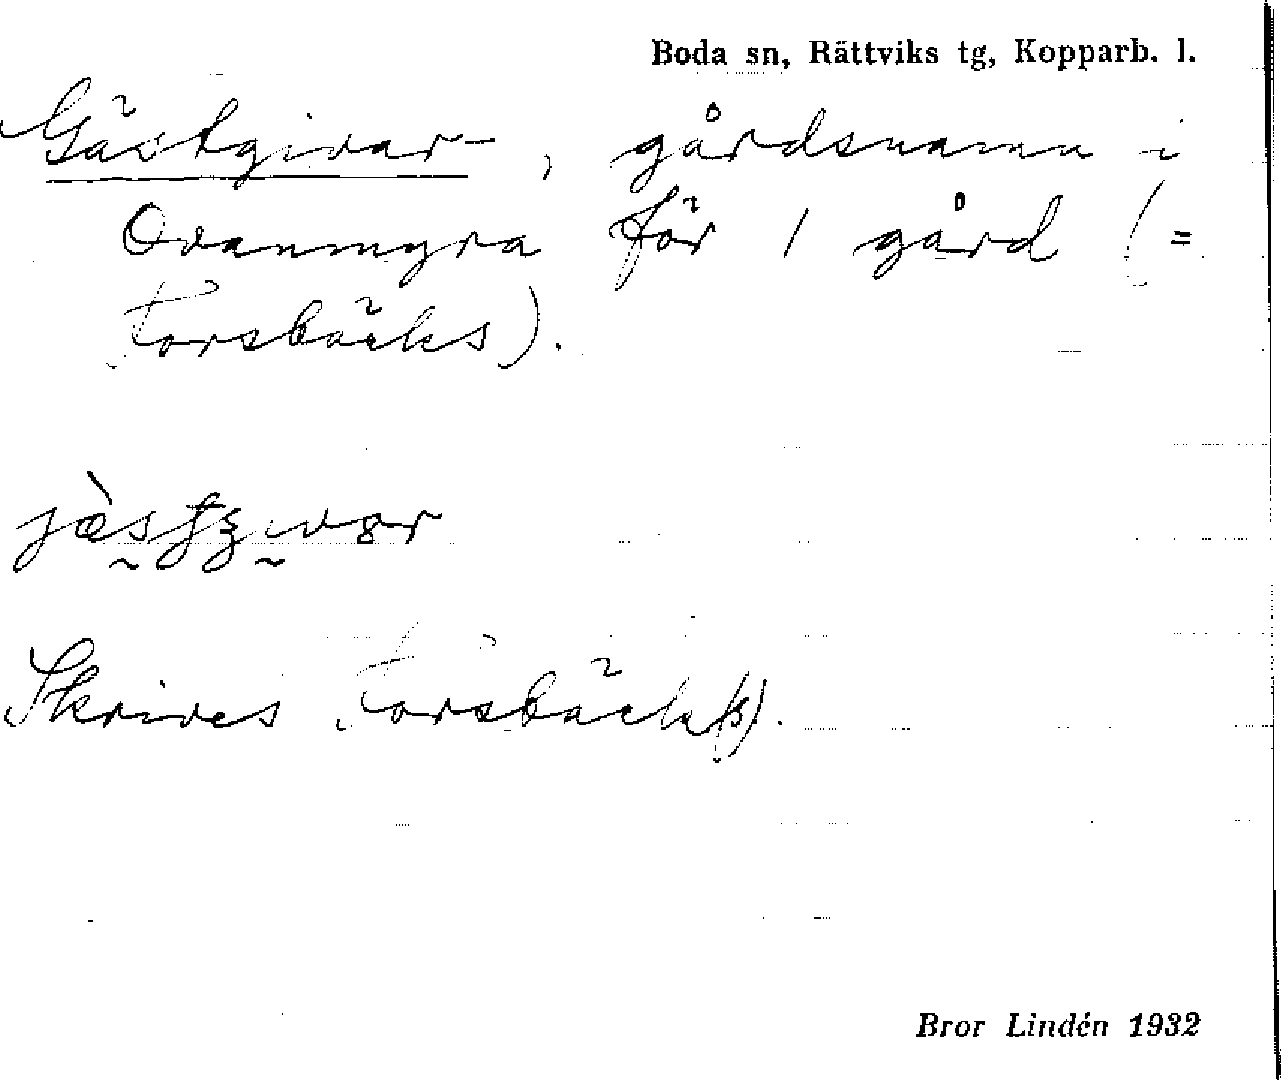 Boda sn, Rättviks tg, Kopparb. l.
Gästgivar-, gårdsnamn i
Ovanmyra för 1 gård (=
Forsbäcks).
Skrives Forsbäck(s).
Bror Lindén 1932